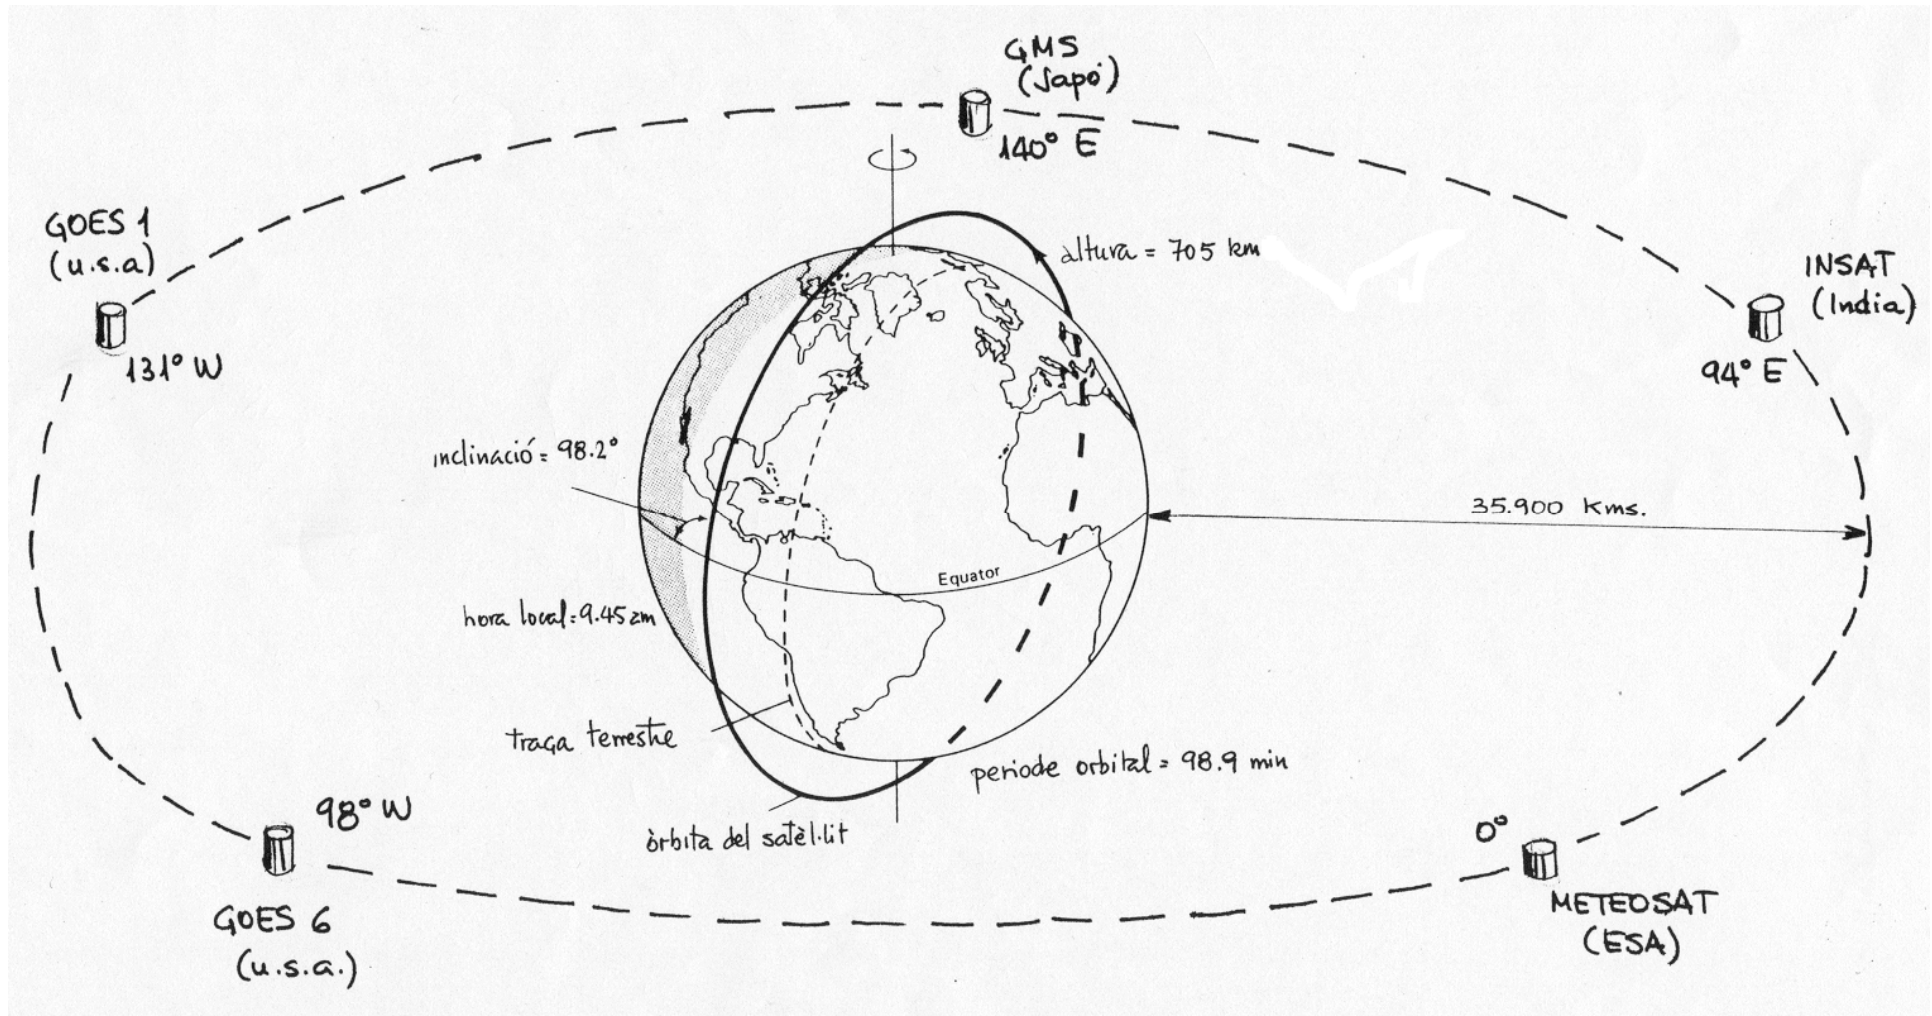 GMS
(Japó)
140° E
GOES 1
(u.s.a)
131° W
altura = 705 km
INSAT
(India)
94° E
inclinació = 98.2°
35.900 Kms.
Equator
hora local = 9.45 am
traça terrestre
periode orbital = 98.9 min
òrbita del satèl·lit
98° W
GOES 6
(u.s.a.)
0°
METEOSAT
(ESA)